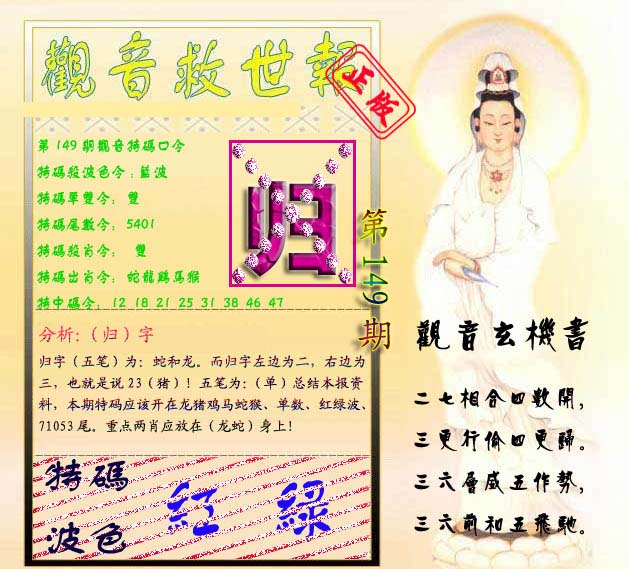 觀音救世報
正版
第149期觀音特碼口令
特碼殺波色令：藍波
特碼單雙令： 雙
特碼尾數令： 5401
特碼殺肖令： 雙
特碼出肖令： 蛇龍鷄馬猴
特中碼令： 12 18 21 25 31 38 46 47
归
第149期
分析:（归）字
归字（五笔）为：蛇和龙。而归字左边为二，右边为
三，也就是说23（猪）！五笔为：（单）总结本报资
料，本期特码应该开在龙猪鸡马蛇猴、单数、红绿波、
71053尾。重点两肖应放在（龙蛇）身上！
特碼
波色
紅 綠
觀音玄機書
二七相合四數開，
三更行偷四更歸。
三六層威五作勢，
三六前和五飛馳。